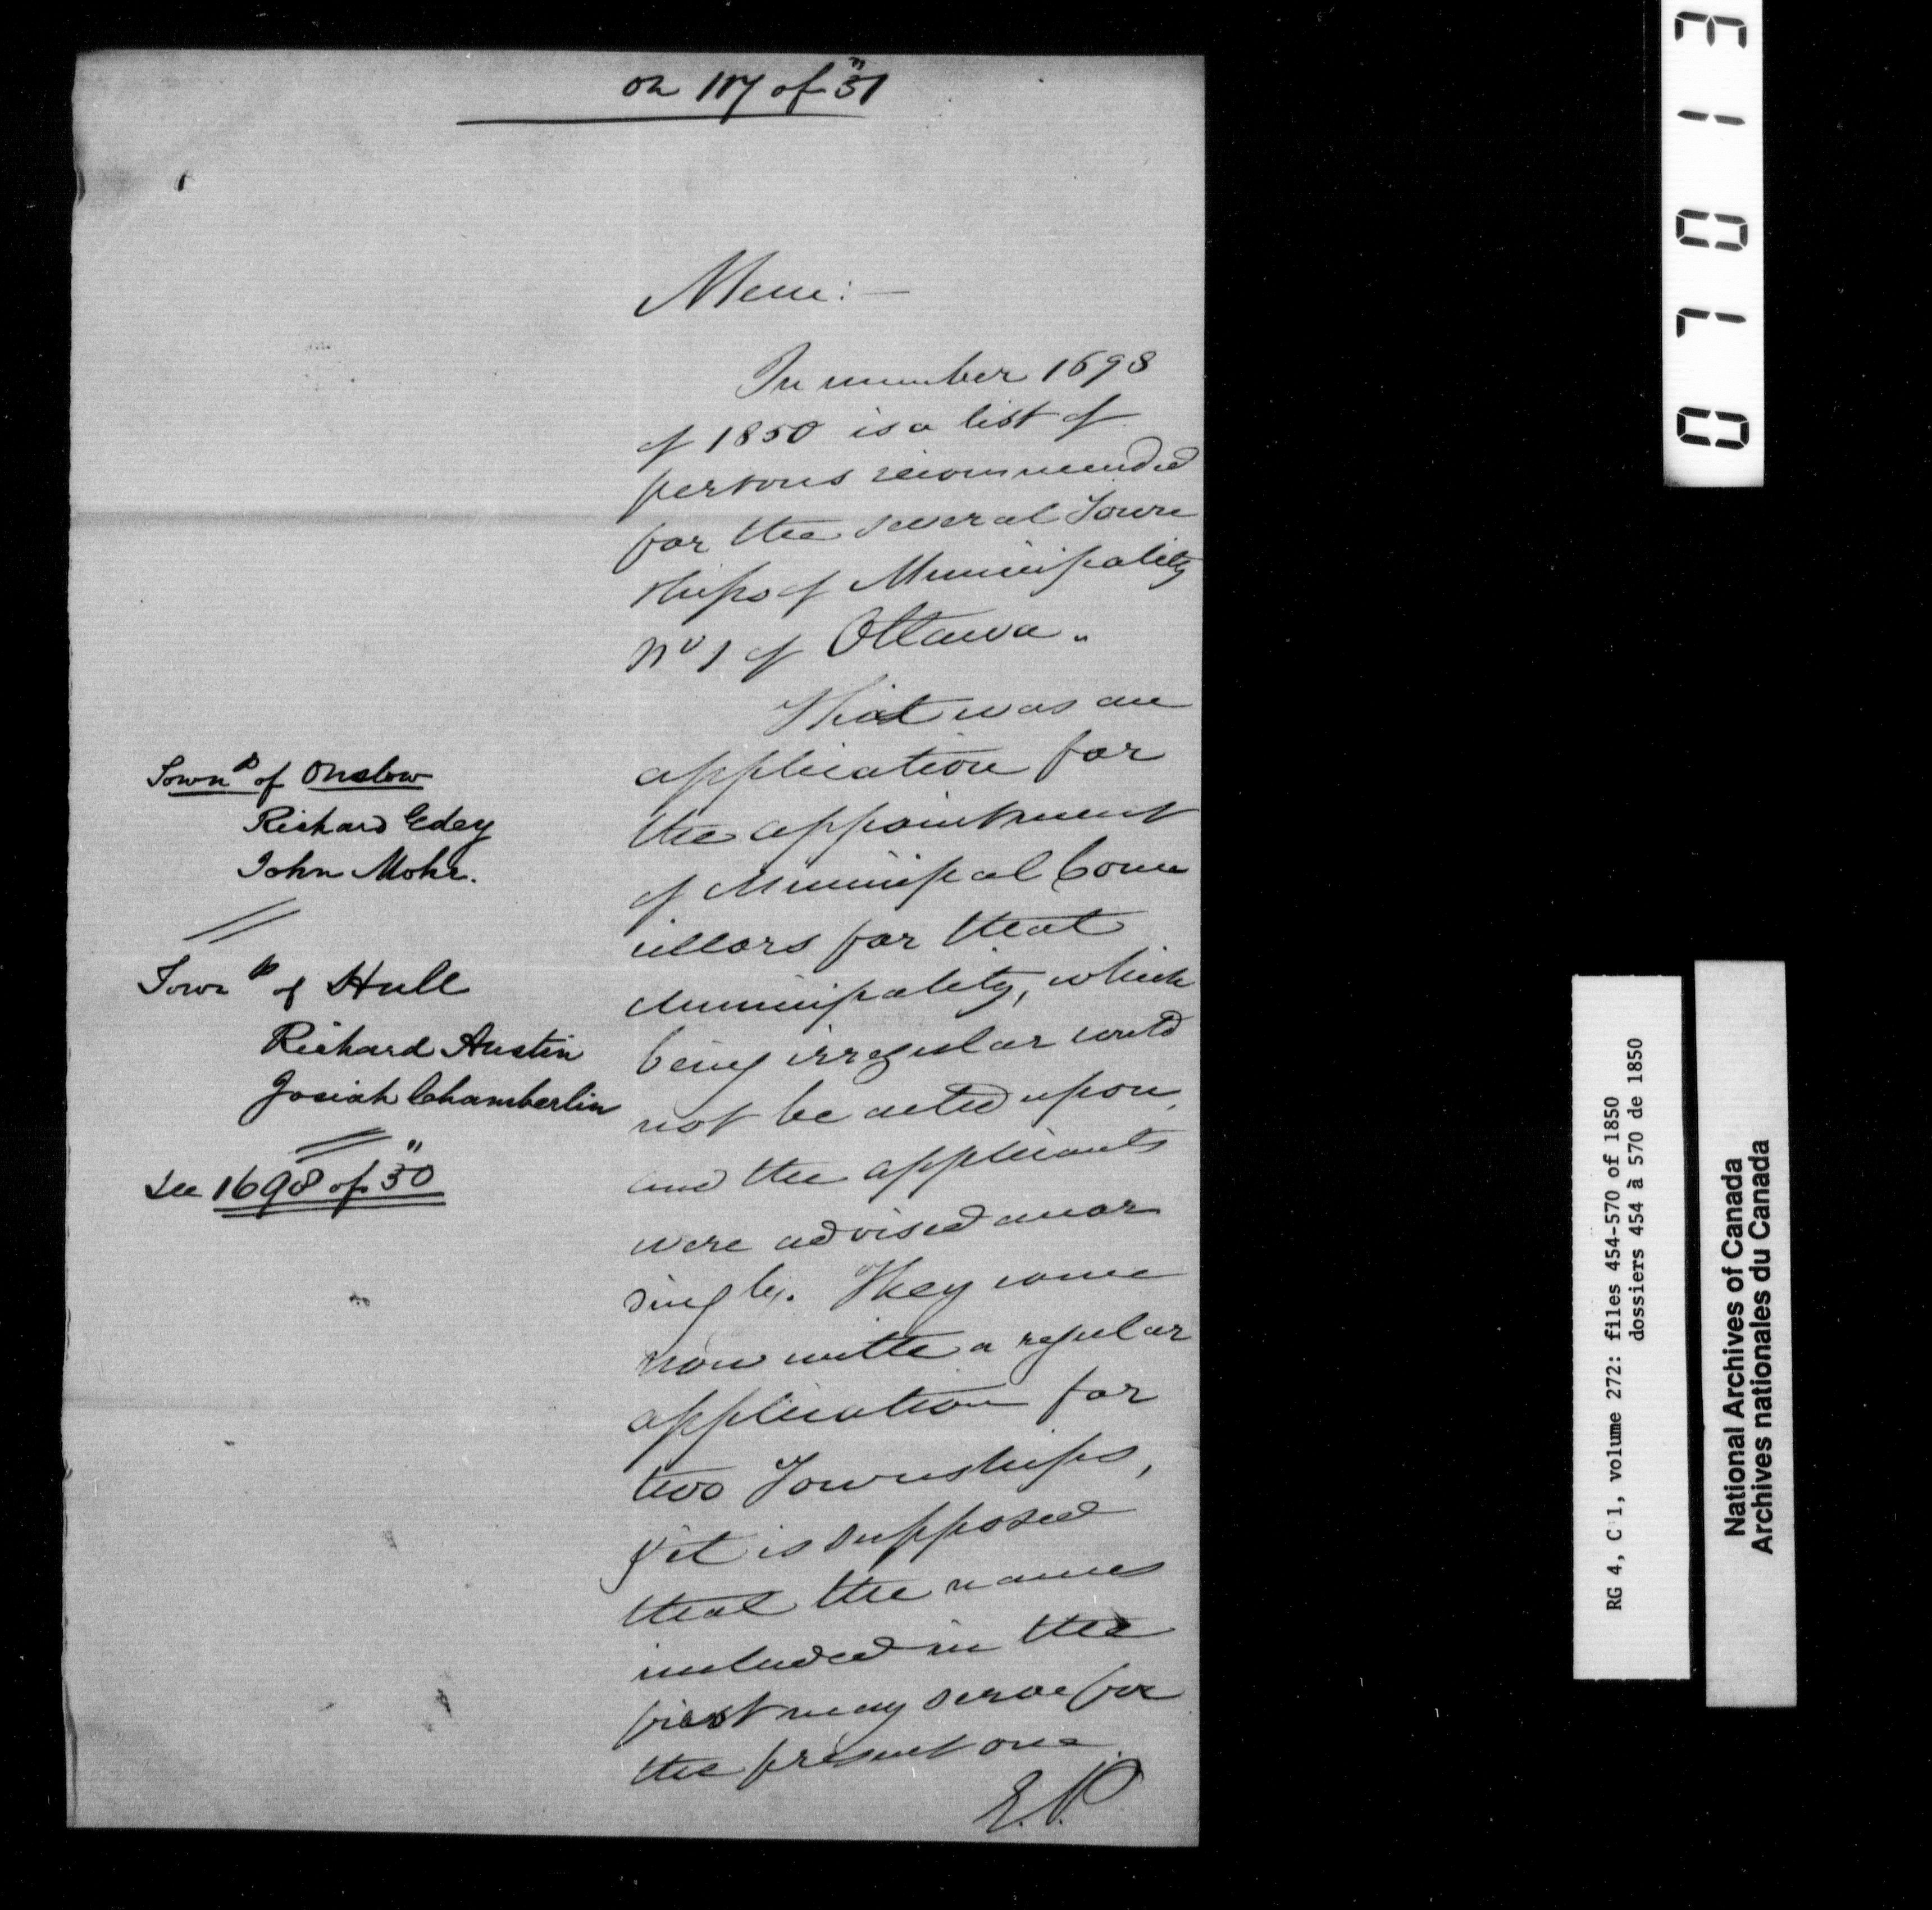 on 117 of "51
Mem: —
In number 1698
of 1850 is a list of
persons recommended
for the several Town
ships of Municipality
No 1 of Ottawa.
That was an
application for
the appointment
of Municipal Coun
cillors for that
Municipality, which
being irregular could
not be acted upon,
and the applicants
were advised accor
dingly. They come
now with a regular
application for
two Townships,
& it is supposed
that the names
included in the
first may serve for
the present one.
E.P.
Townp of Onslow
Richard Edey
John Mohr.
Townp of Hull
Richard Austin
Josiah Chamberlin
See 1698 of "50
07013
RG 4, C 1, volume 272: files 454-570 of 1850
dossiers 454 à 570 de 1850
National Archives of Canada
Archives nationales du Canada